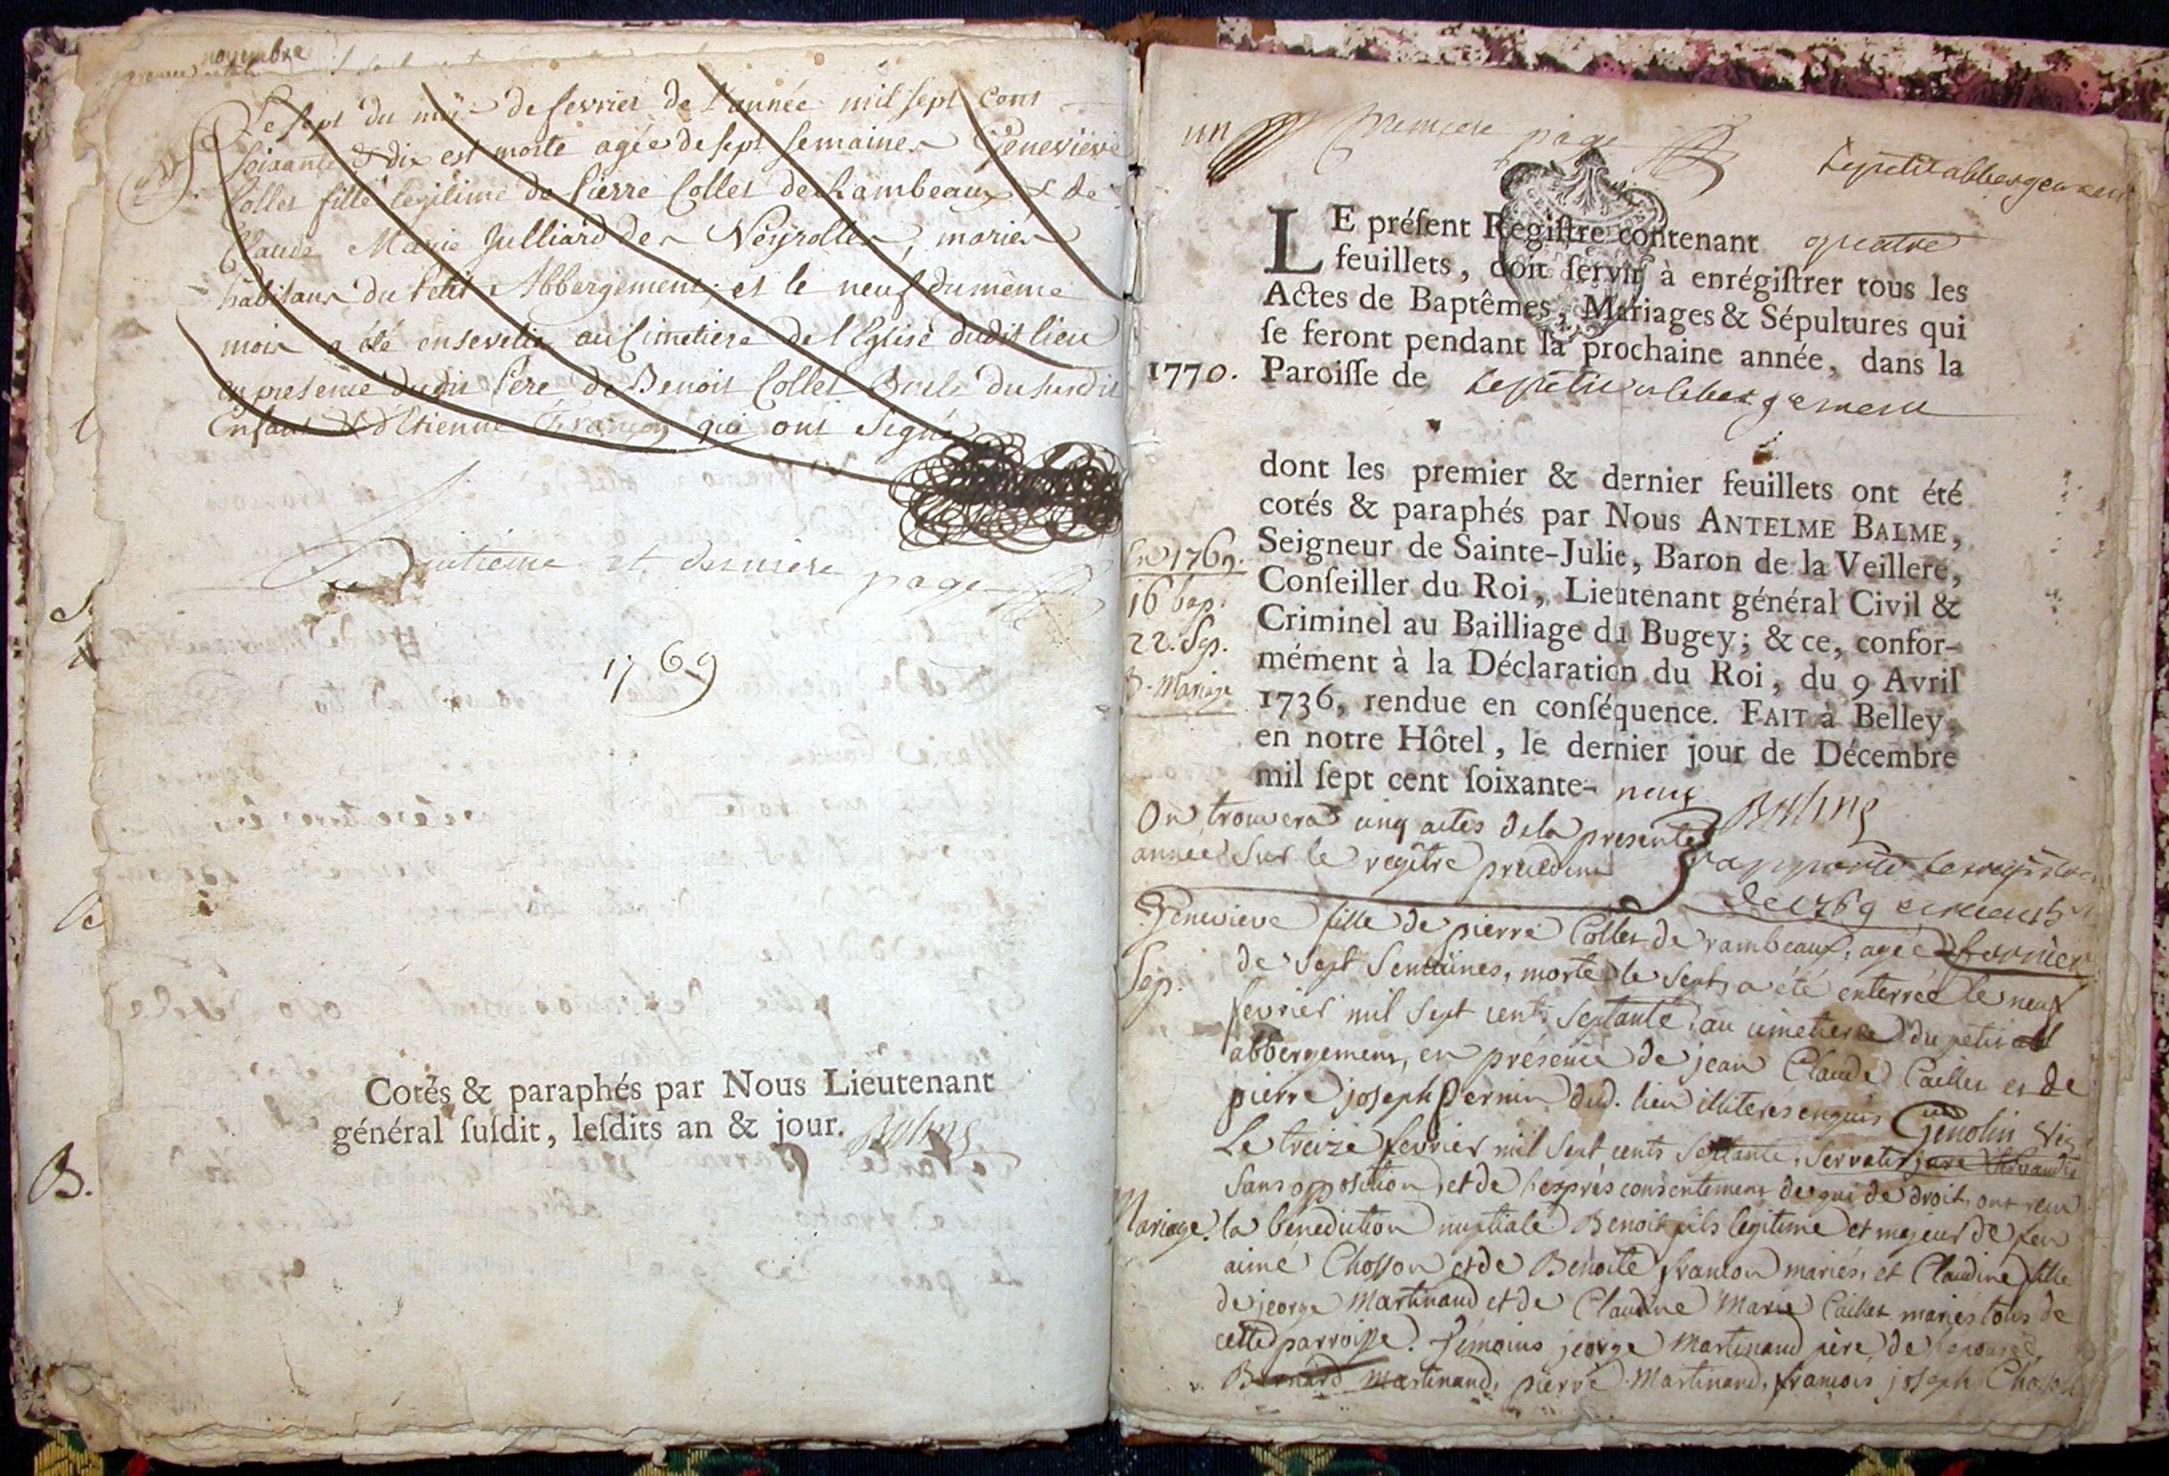 novembre
Le sept du moi de fevrier de l'année mil sept cent
soixante & dix est morte agée de sept semaines Genevieve
Collet fille legitime de Pierre Collet de Rambeaux & de
Claude Marie Julliard des Neyrolles, mariés
habitans du Petit Abbergement; et le neuf du même
mois a été ensevelie au Cimetiere de l'Eglise dudit lieu
en presence dudit Pere de Benoit Collet Oncle du susdit
Enfant & d'Etienne Françon qui ont Signé
huitieme et derniere page
1769
Cotés & paraphés par Nous Lieutenant
général ſuſdit, leſdits an & jour. Balme
B.
un
Premiere page
Le petit abbergement
LE préſent Regiſtre contenant quatre
feuillets, doit ſervir à enrégiſtrer tous les
Actes de Baptêmes, Mariages & Sépultures qui
ſe feront pendant la prochaine année, dans la
1770. Paroiſſe de Le petit abbergement
dont les premier & dernier feuillets ont été
cotés & paraphés par Nous ANTELME BALME,
Seigneur de Sainte-Julie, Baron de la Veillere,
Conſeiller du Roi, Lieutenant général Civil &
Criminel au Bailliage du Bugey; & ce, confor-
mément à la Déclaration du Roi, du 9 Avril
1736, rendue en conſéquence. FAIT à Belley,
en notre Hôtel, le dernier jour de Décembre
mil ſept cent ſoixante- neuf Balme
1769.
16 bap.
22. Sep.
8. Mariage
On trouvera cinq actes de la presente
année Sur leregître précédent
apporté le registre
de 1769
Sep.
Genevieve fille de pierre Collet de rambeaux, agée
de Sept Semaines, morte le Sept, a été enterrée le neuf
fevrier mil Sept cents Septante, au cimetiere du petit
abbergement, en présence de jean Claude Caillet et de
pierre joseph Pernin dud. lieu illiterés enquis Genolin
Mariage.
Le treize fevrier mil Sept cents Septante, Servatis
Sans opposition, et de l'exprès consentement de qui de droit, ont reçu
la benediction nuptiale Benoit fils legitime et majeur de feu
aimé Chosson et de Benoite françon mariés, et Claudine fille
de jeorge Martinand et de Claudine Marie Caillet mariés tous de
cette parroisse. Témoins jeorge Martinand père de l'epousée,
Bernard Martinand, pierre Martinand, françois joseph Chosson